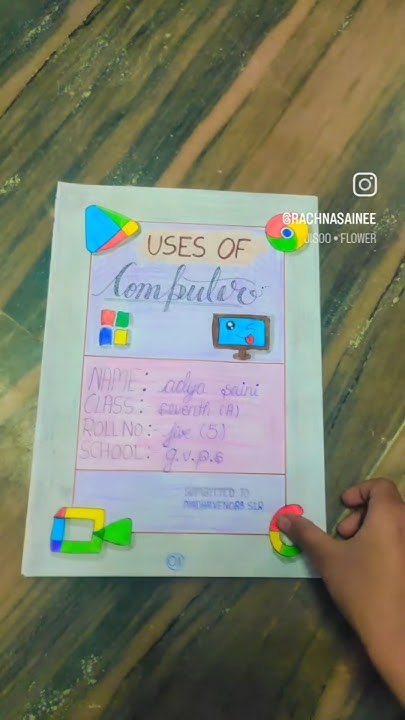 @RACHNASAINEE
JISOO • FLOWER
USES OF
Computer
NAME: adya saini
CLASS: seventh (A)
ROLL NO:- five (5)
SCHOOL:- g.v.p.s
SUBMITTED TO
SIR
01